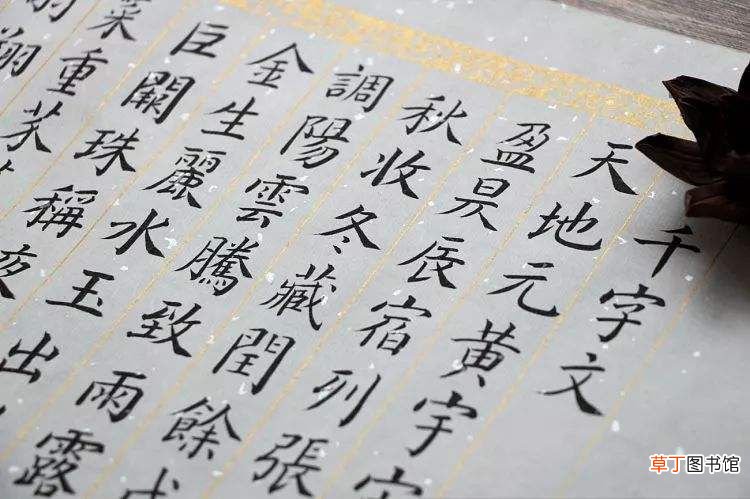 千字文
天地元黄宇
盈昃辰宿列張
秋收冬藏閏餘成
調陽雲騰致雨露
金生麗水玉出
巨闕珠稱夜
菜重芥
翔
草丁图书馆